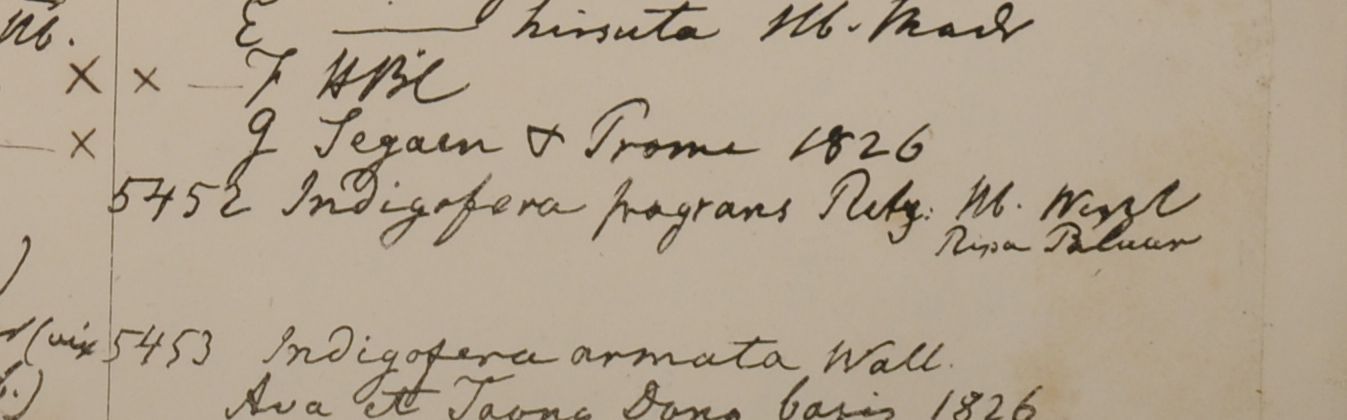 Hb. E —— hirsuta Hb. Madr
× × — F HBC
— × G Segaen & Prome 1826
5452 Indigofera fragrans Retz: Hb. Wight
Ripa
)
(vix 5453 Indigofera armata Wall.
.) Ava et Taong Dong basis 1826